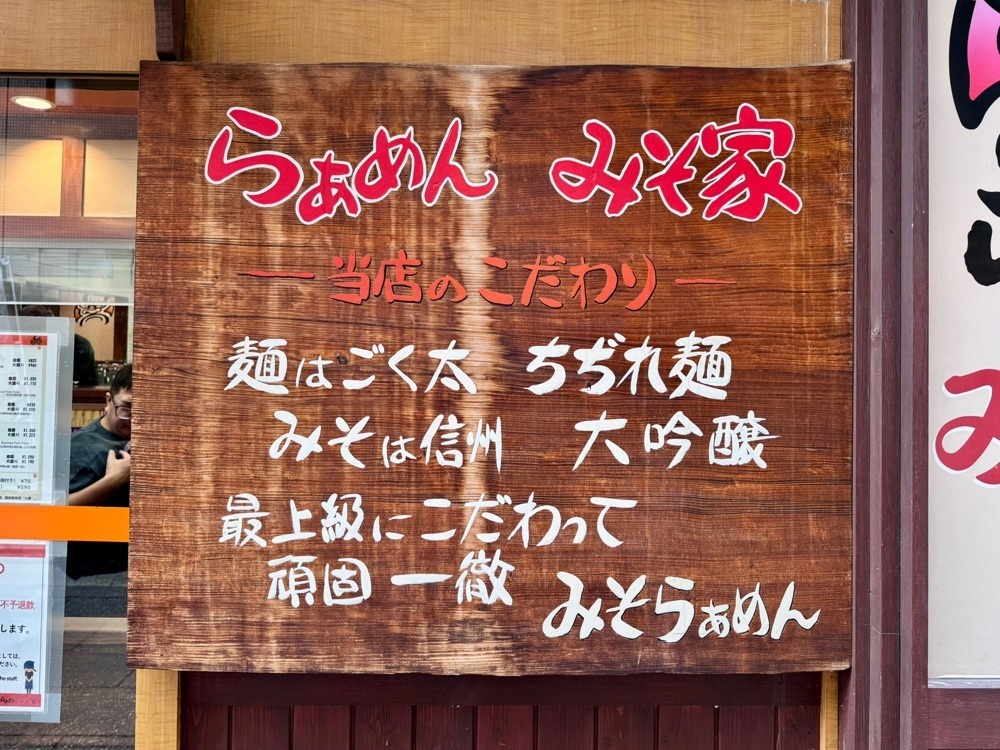 らぁめん みそ家
― 当店のこだわり ―
麺はごく太 ちぢれ麺
みそは信州 大吟醸
最上級にこだわって
頑固一徹
みそらぁめん
み
不予退款
します。
しては、
ださい。
he staff.